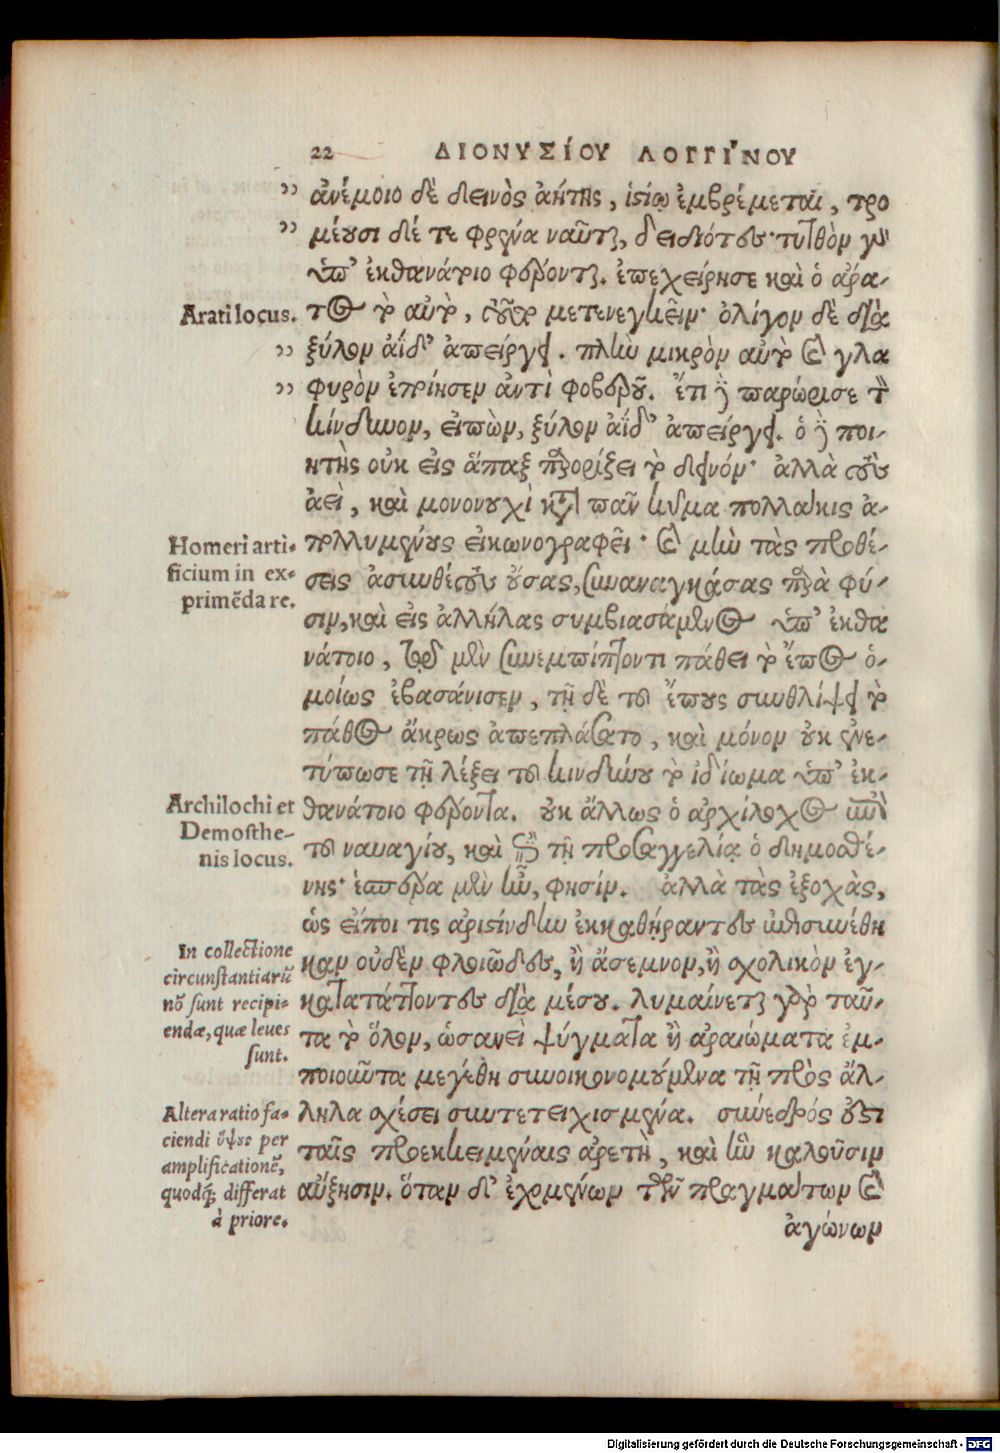 22 ΔΙΟΝΥΣΊΟΥ ΛΟΓΓΊΝΟΥ
ἀνέμοιο δὲ δεινὸς ἀήτης, ἱστίῳ ἐμβρέμεται, τρο
μέουσι δέ τε φρένα ναῦται, δειδιότες· τυτθὸν γὰρ
ὑπ' ἐκθανάτοιο φέρονται. ἐπεχείρησε καὶ ὁ ἄρα-
Arati locus. τος τὸ αὐτὸ τοῦτο μετενεγκεῖν· ὀλίγον δὲ διὰ
ξύλον ἄϊδ' ἀπείργει. πλὴν μικρὸν αὐτὸ καὶ γλα
φυρὸν ἐποίησεν ἀντὶ φοβεροῦ. ἔτι δὲ παρώρισε τὸν
κίνδυνον, εἰπὼν, ξύλον ἄϊδ' ἀπείργει. ὁ δὲ ποι-
ητὴς οὐκ εἰς ἅπαξ παρορίζει τὸ δεινόν· ἀλλὰ τοὺς
ἀεὶ, καὶ μονονουχὶ κατὰ πᾶν κῦμα πολλάκις ἀ-
Homeri arti-
ficium in ex-
primēda re.
πολλυμένους εἰκωνογραφεῖ· καὶ μὴν τὰς προθέ-
σεις ἀσυνθέτους οὔσας, συναναγκάσας παρὰ φύ-
σιν, καὶ εἰς ἀλλήλας συμβιασάμενος ὑπ' ἐκθα
νάτοιο, τῷ μὲν συνεμπίπτοντι πάθει τὸ ἔπος ὁ-
μοίως ἐβασάνισεν, τῇ δὲ τοῦ ἔπους συνθλίψει τὸ
πάθος ἄκρως ἀπεπλάσατο, καὶ μόνον οὐκ ἐνε-
τύπωσε τῇ λέξει τοῦ κινδύνου τὸ ἰδίωμα ὑπ' ἐκ-
Archilochi et
Demosthe-
nis locus.
θανάτοιο φέρονται. οὐκ ἄλλως ὁ ἀρχίλοχος ἐπὶ
τοῦ ναυαγίου, καὶ ἐπὶ τῇ προσαγγελίᾳ ὁ δημοσθέ-
νης· ἑσπέρα μὲν ἦν, φησίν. ἀλλὰ τὰς ἐξοχὰς,
ὡς εἴποι τις ἀριστίνδην ἐκκαθήραντες ἐπισυνέθη
In collectione
circunstantiarū
nō sunt recipi-
endæ, quæ leues
sunt.
καν οὐδὲν φλοιῶδες, ἢ ἄσεμνον, ἢ σχολικὸν ἐγ-
κατατάττοντες διὰ μέσου. λυμαίνεται γὰρ ταῦ-
τα τὸ ὅλον, ὡσανεὶ ψύγματα ἢ ἀραιώματα ἐμ-
ποιοῦντα μεγέθη συνοικονομούμενα τῇ πρὸς ἄλ-
Altera ratio fa-
ciendi ὕψους per
amplificationē,
quodq; differat
à priore.
ληλα σχέσει συντετειχισμένα. σύνεδρός ἐστι
ταῖς προεκκειμέναις ἀρετὴ, καὶ ἣν καλοῦσιν
αὔξησιν. ὅταν δ' ἐχομένων τῶν πραγμάτων καὶ
ἀγώνων
Digitalisierung gefördert durch die Deutsche Forschungsgemeinschaft - DFG